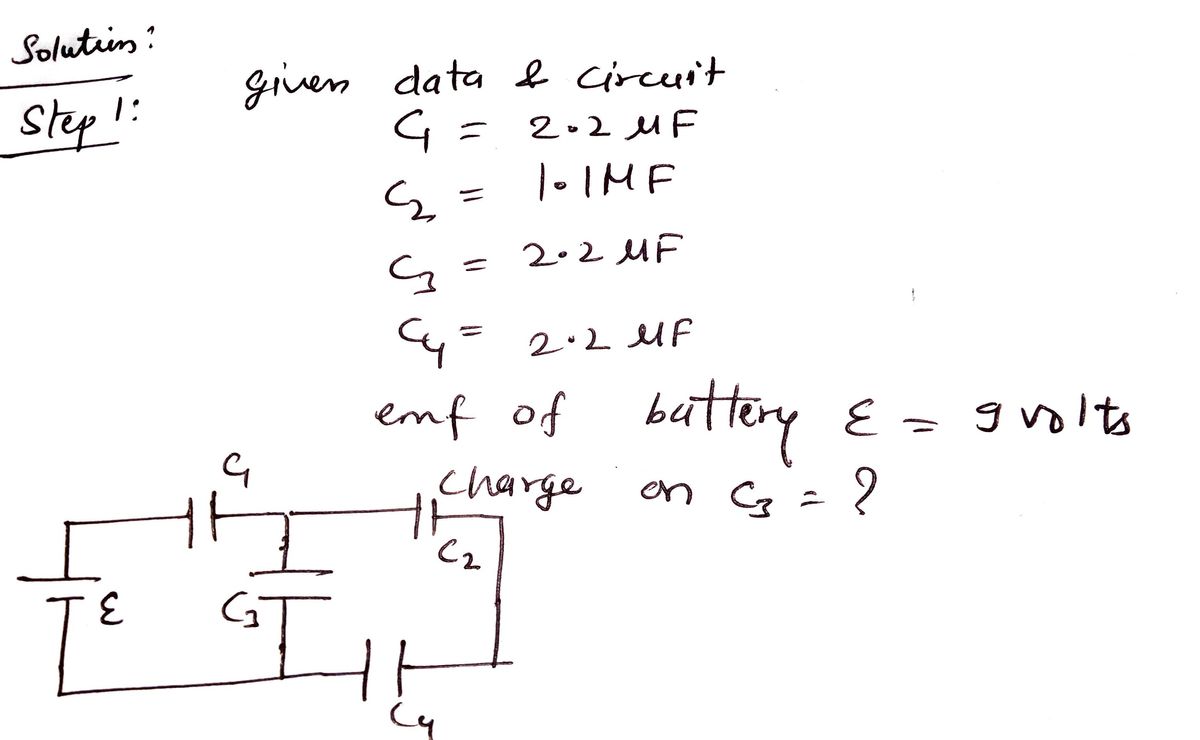 Solution:
Step 1:
given data & circuit
C1 = 2.2 μF
C2 = 1.1 μF
C3 = 2.2 μF
C4 = 2.2 μF
emf of battery ε = 9 volts
charge on C3 = ?
C1
C2
ε
C3
C4